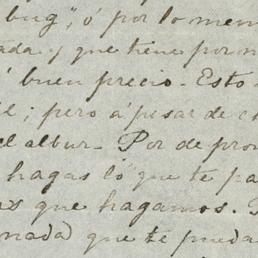 bug", ó por lo men
ada y que tiene por n
á buen precio. Esto
il; pero á pesar de c
el albur. Por de pron
hagas lo que te pa
as que hagamos.
nada que te pueda